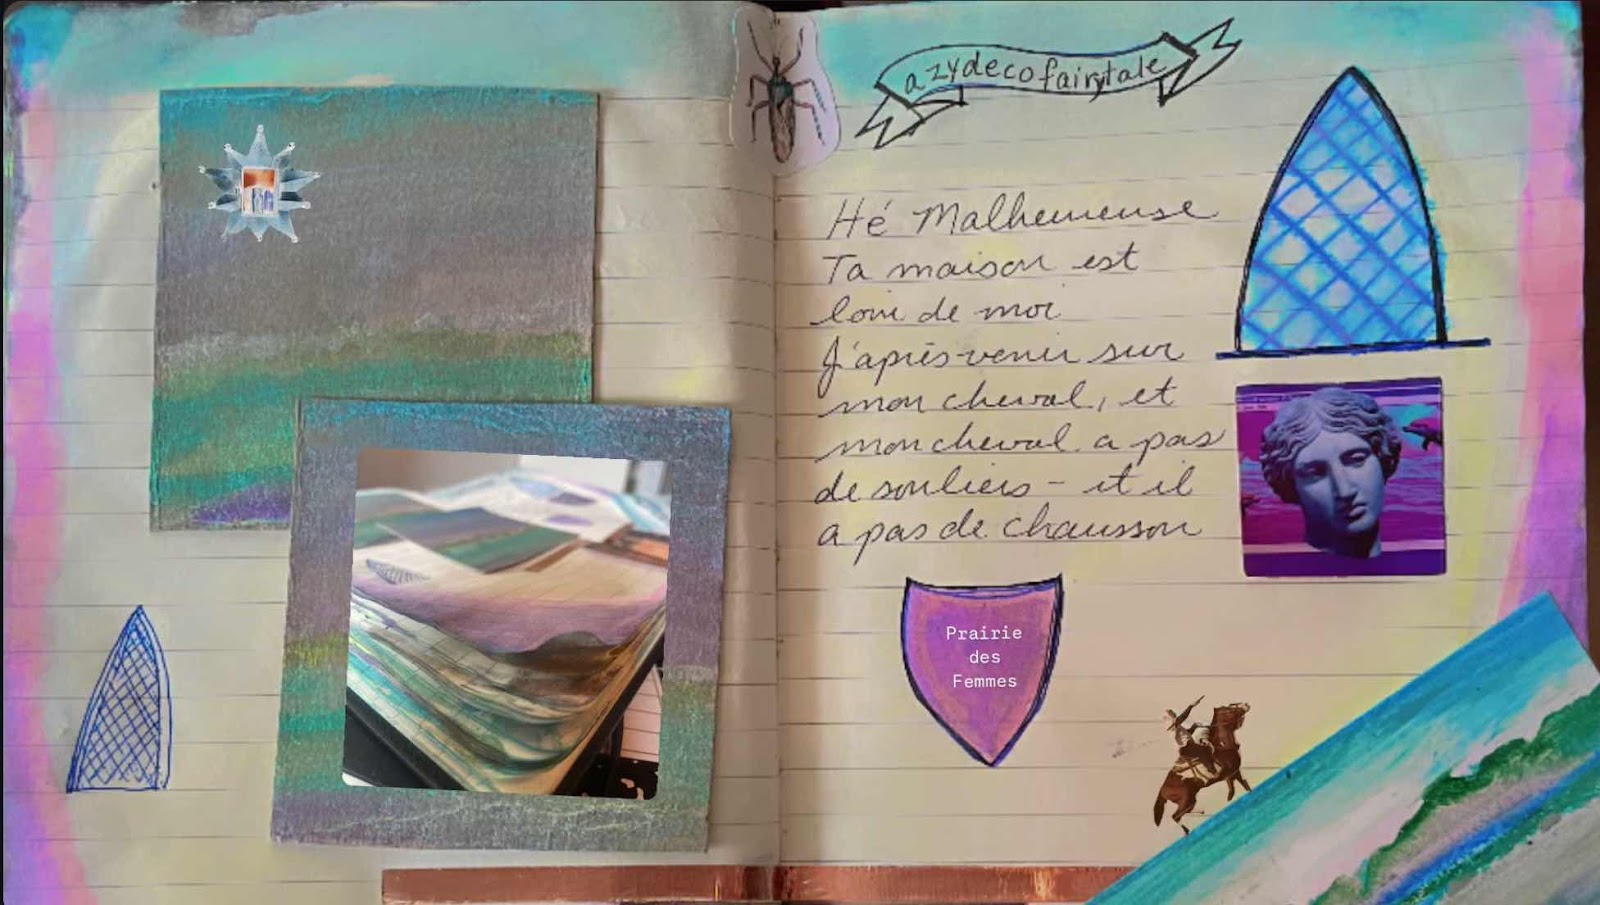 a zydeco fairytale
Hé Malheureuse
Ta maison est
loin de moi
J'après venir sur
mon cheval, et
mon cheval a pas
de souliers – et il
a pas de chausson
Prairie
des
Femmes